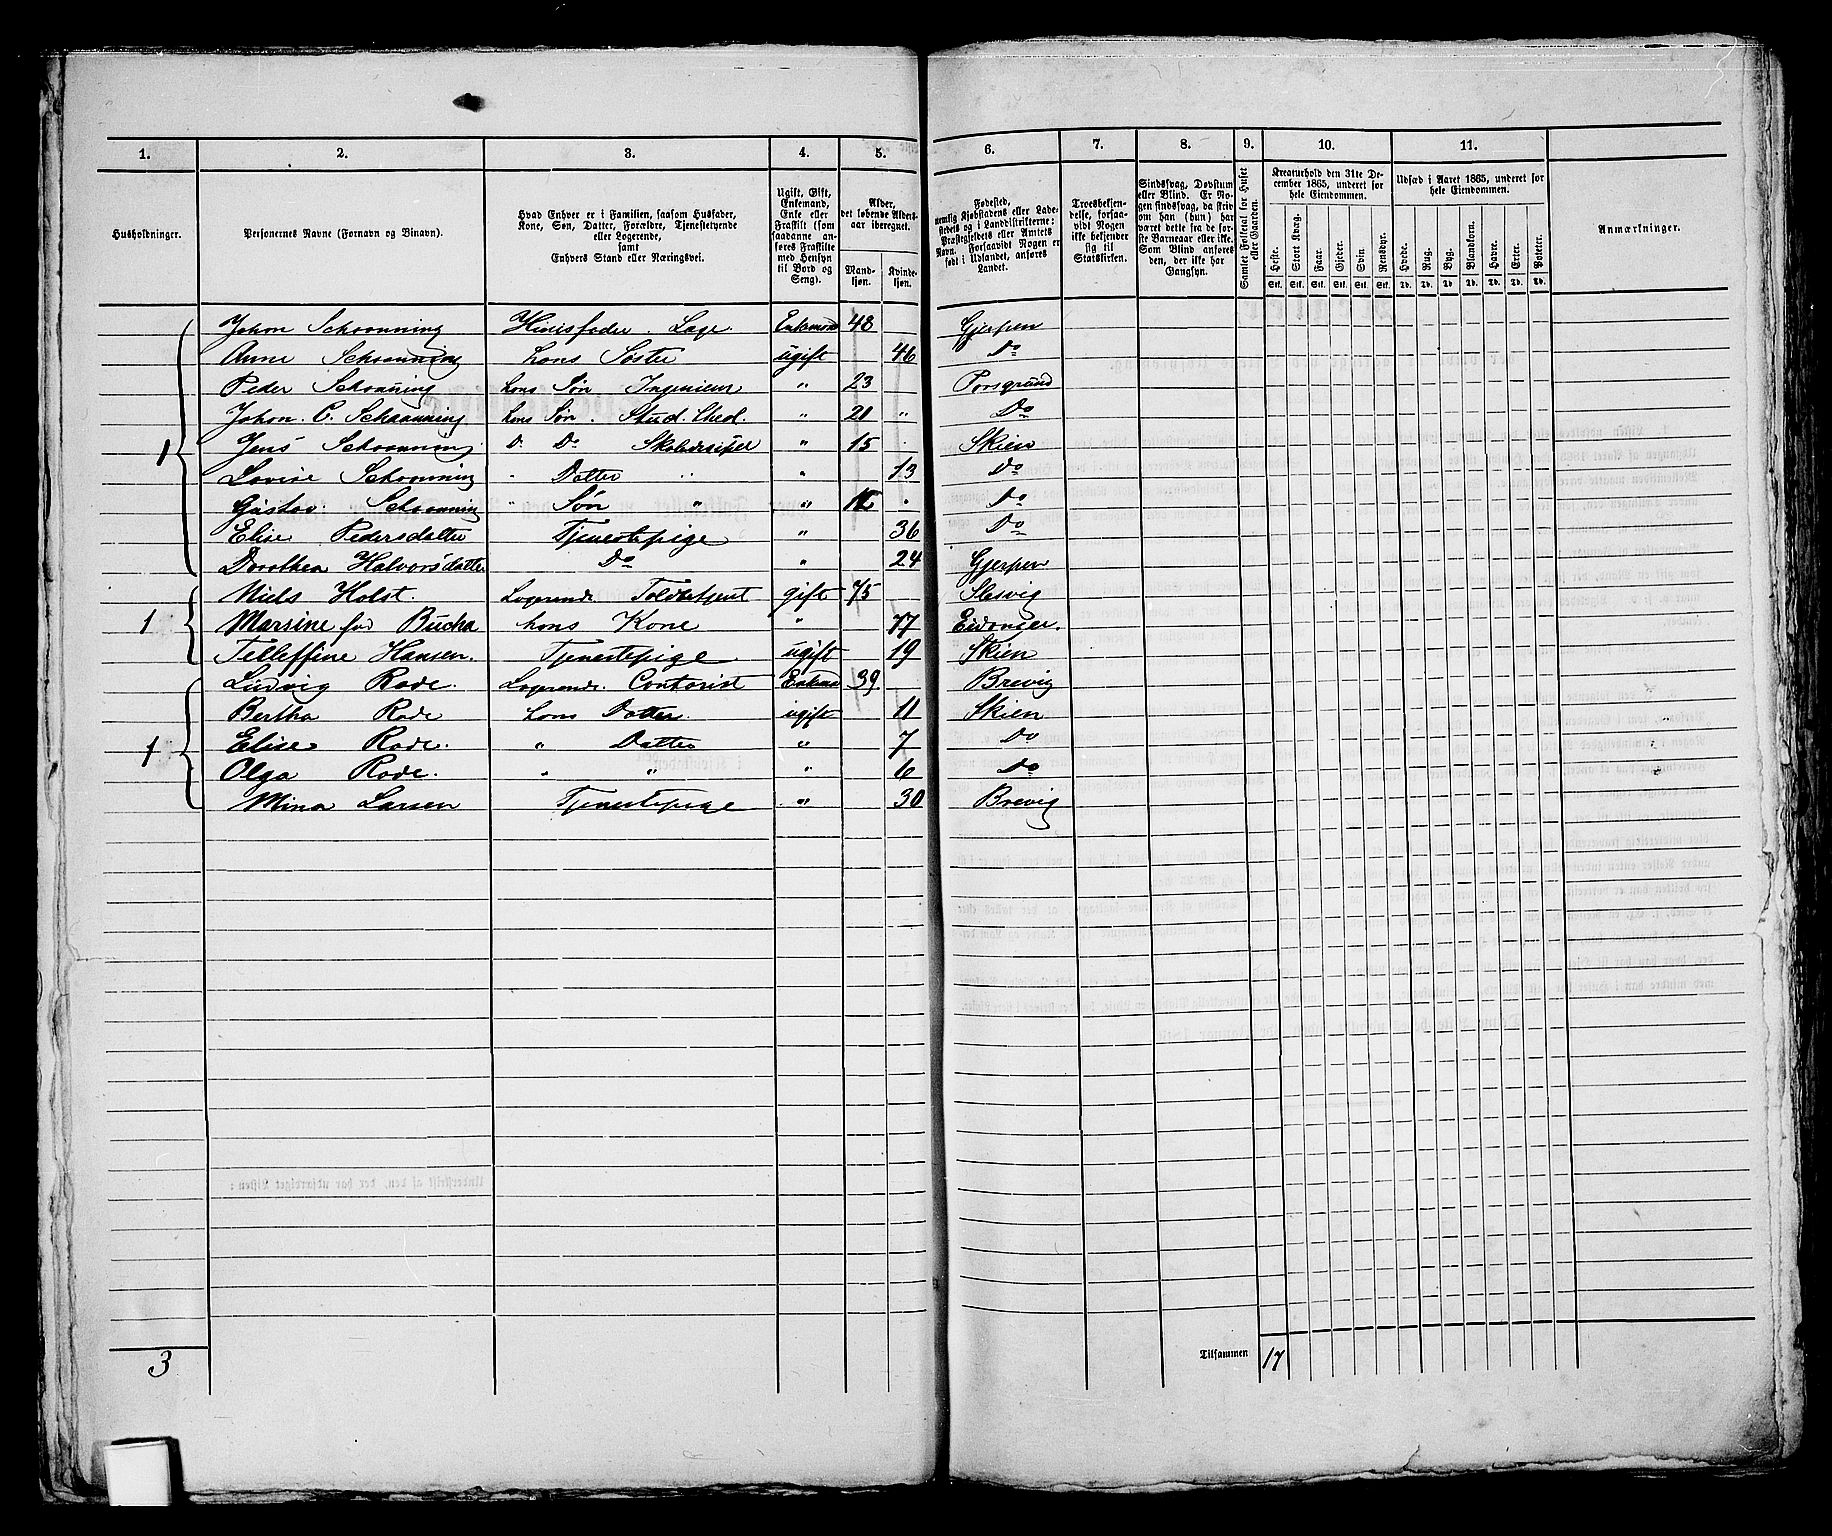 1. 2. 3. 4. 5. 6. 7. 8. 9. 10. 11.
Husholdninger.
Personernes Navne (Fornavn og Binavn).
Hvad Enhver er i Familien, saasom Husfader,
Kone, Søn, Datter, Forældre, Tjenestetyende
eller Logerende,
samt
Enhvers Stand eller Næringsvei.
Ugift, Gift,
Enkemand,
Enke eller
Fraskilt (som
saadanne an-
føres Fraskilte
med Hensyn
til Bord og
Seng).
Alder,
det løbende Alders-
aar iberegnet.
Mand-
kjøn.
Kvinde-
kjøn.
Fødested,
nemlig Kjøbstadens eller Lade-
stedets og i Landdistrikterne:
Præstegjeldets eller Amtets
Navn. Forsaavidt Nogen er
født i Udlandet, anføres
Landet.
Troesbekjen-
delse, forsaa-
vidt Nogen
ikke bekjender
sig til
Statskirken.
Sindssvag, Døvstum
eller Blind. Er No-
gen sindssvag, da skriv
om han (hun) har
været dette fra de før-
ste Barneaar eller ikke.
Som Blind anføres
den, der ikke har
Gangsyn.
Samlet Folketal for Huset
eller Gaarden.
Kreaturhold den 31te De-
cember 1865, underet for
hele Eiendommen.
Heste. Stort Kvæg. Faar. Gjeder. Svin. Rensdyr.
Stk. Stk. Stk. Stk. Stk. Stk.
Udsæd i Aaret 1865, underet for
hele Eiendommen.
Hvede. Rug. Byg. Blandkorn. Havre. Erter. Poteter.
Td. Td. Td. Td. Td. Td. Td.
Anmærkninger.
Johan Schaanning Huusfader. Læge. Enkemand 48 Gjerpen
Anne Schaanning hans Søster ugift 46 Do
Peder Schaanning hans Søn Ingenieur " 23 Porsgrund
Johan. C. Schaanning hans Søn. Stud. Med. " 21 " Do
1 Jens Schaanning D. Do Skolediscipel " 15 Skien
Lovise Schaanning Datter " 13 Do
Gustav Schaanning " Søn " " Do
Elise Pedersdatter Tjenestepige " 36 Do
Dorothea Halvorsdatter Do " 24 Gjerpen
Niels Holst. Logerende Toldbetjent gift 75 Slesvig
1 Marsine fød Bucka hans Kone " 77 Eidanger.
Telleffine Hansen. Tjenestepige ugift 19 Skien
Ludvig Rode. Logerende. Contorist Enkmd 39. Brevig
Bertha Rode hans Datter. ugift 11 Skien
1 Elise Rode. " Datter " 7 Do
Olga Rode. " " " 6 Do
Mina Larsen Tjenestepige " 30 Brevig
3 Tilsammen 17